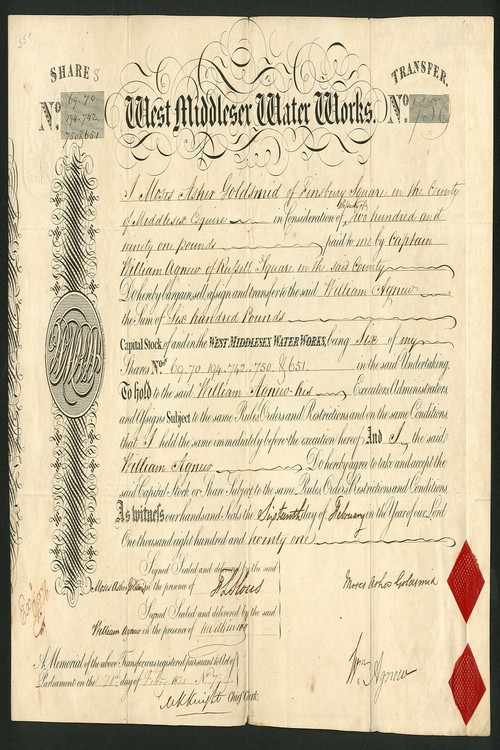 SHARES TRANSFER.
No. 69.70 194.742 750&651 West Middlesex Water Works. No. 756
I Moses Asher Goldsmid of Finsbury Square in the County
of Middlesex Esquire in Consideration of Two hundred and
ninety one pounds paid to me by Captain
William Agnew of Russell Square in the said County
Do hereby bargain, sell, assign and transfer to the said William Agnew
the Sum of Six hundred Pounds
Capital Stock of and in the WEST MIDDLESEX WATER WORKS, being Six of my
Shares Nos. 69.70.194.742.750.&651 in the said Undertaking.
To hold to the said William Agnew his Executors, Administrators,
and Assigns Subject to the same Rules, Orders and Restrictions and on the same Conditions,
that I held the same immediately before the execution hereof And I, the said
William Agnew Do hereby agree to take and accept the
said Capital Stock or Share Subject to the same Rules, Orders, Restrictions and Conditions,
As witness our hands and Seals the Sixteenth day of February in the Year of our Lord
One thousand eight hundred and twenty one
Signed Sealed and delivered by the said
Moses Asher Goldsmid in the presence of
Moses Asher Goldsmid
Signed Sealed and delivered by the said
William Agnew in the presence of
Wm. Agnew
A Memorial of the above Transfer was registered pursuant to Act of
Parliament on the day of 1821
Chief Clerk.